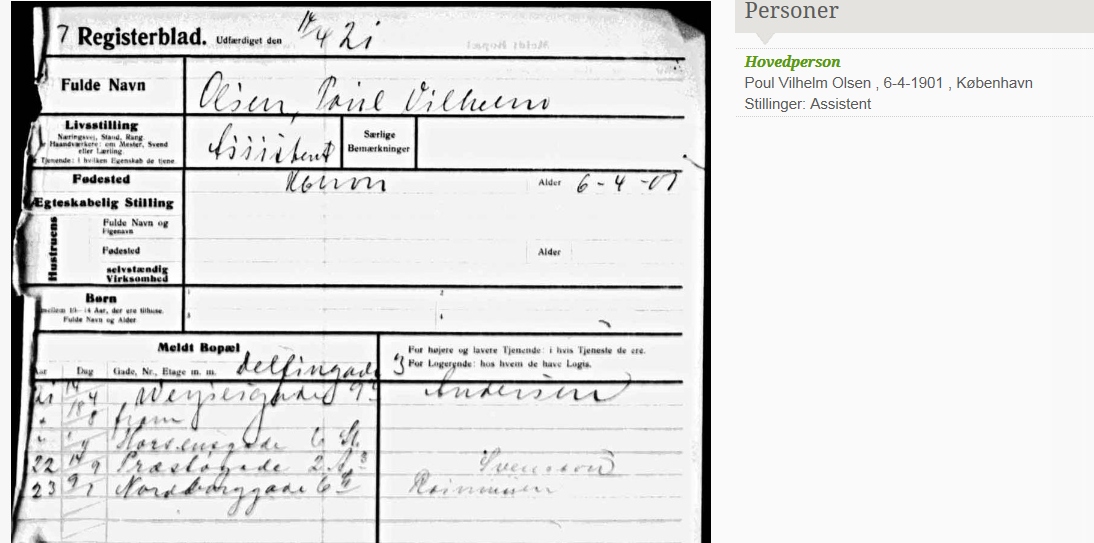 7 Registerblad. Udfærdiget den 14/4 21
Fulde Navn Olsen, Poul Vilhelm
Livsstilling
Næringsvej, Stand, Rang.
Haandværkere: om Mester, Svend
eller Lærling.
Tjenende: i hvilken Egenskab de tjene.
Assistent
Særlige
Bemærkninger
Fødested Kbhvn Alder 6-4-01
Ægteskabelig Stilling
Hustruens
Fulde Navn og
Eigenavn
Fødested Alder
selvstændig
Virksomhed
Børn
mellem 10-14 Aar, der ere tilhuse.
Fulde Navn og Alder.
1 2
3 4
Meldt Bopæl
For højere og lavere Tjenende: i hvis Tjeneste de ere.
Aar Dag Gade, Nr., Etage m. m. delfingade 3 For Logerende: hos hvem de have Logis.
21 14/4 Weysesgade 9 Andersen
18/8 fram
Horsensgade 6 St.
22 14/9 Præstøgade 2 Svensson
23 9/1 Nordborggade 6 Rasmussen
Personer
Hovedperson
Poul Vilhelm Olsen , 6-4-1901 , København
Stillinger: Assistent